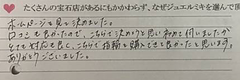 たくさんの宝石店があるにもかかわらず、なぜジュエルミキを選んで頂
ホームページを見て決めました。
口コミも良かったので、こちらで決めようと思い初めて伺いましたが
とても対応も良く、こちらで指輪を購入できて良かったと思います。
ありがとうございました。